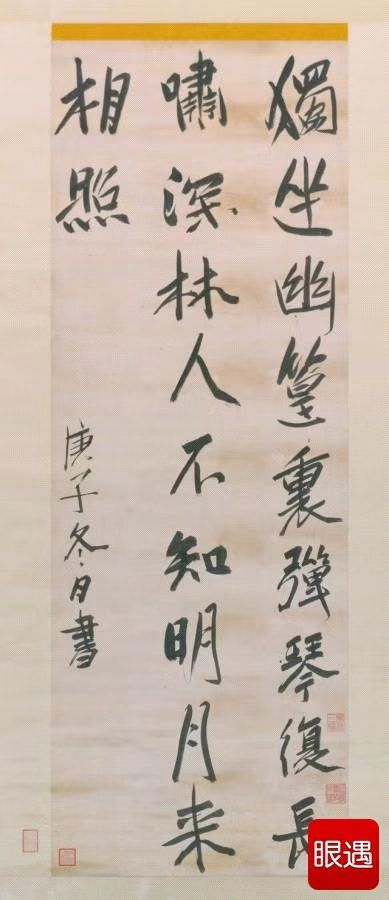 獨坐幽篁裏彈琴復長
嘯深林人不知明月来
相照
庚子冬月書
眼遇